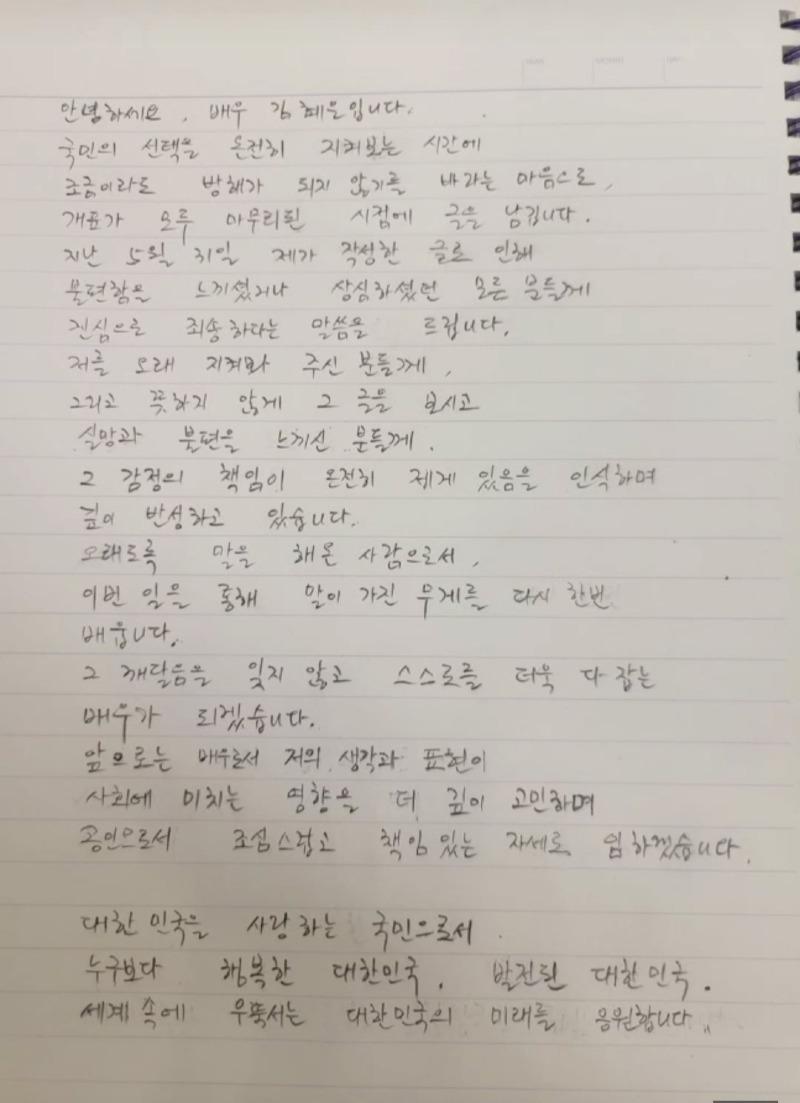 안녕하세요, 배우 김혜은입니다.
국민의 선택을 온전히 지켜보는 시간에
조금이라도 방해가 되지 않기를 바라는 마음으로,
개표가 모두 마무리된 시점에 글을 남깁니다.
지난 5월 31일 제가 작성한 글로 인해
불편함을 느끼셨거나 상심하셨던 모든 분들께
진심으로 죄송하다는 말씀을 드립니다.
저를 오래 지켜봐 주신 분들께,
그리고 뜻하지 않게 그 글을 보시고
실망과 불편을 느끼신 분들께.
그 감정의 책임이 온전히 제게 있음을 인식하며
깊이 반성하고 있습니다.
오래도록 말을 해온 사람으로서,
이번 일을 통해 말이 가진 무게를 다시 한번
배웁니다.
그 깨달음을 잊지 않고 스스로를 더욱 다 잡는
배우가 되겠습니다.
앞으로는 배우로서 저의 생각과 표현이
사회에 미치는 영향을 더 깊이 고민하며
공인으로서 조심스럽고 책임 있는 자세로 임하겠습니다.
대한민국을 사랑하는 국민으로서
누구보다 행복한 대한민국, 발전된 대한민국.
세계 속에 우뚝서는 대한민국의 미래를 응원합니다..